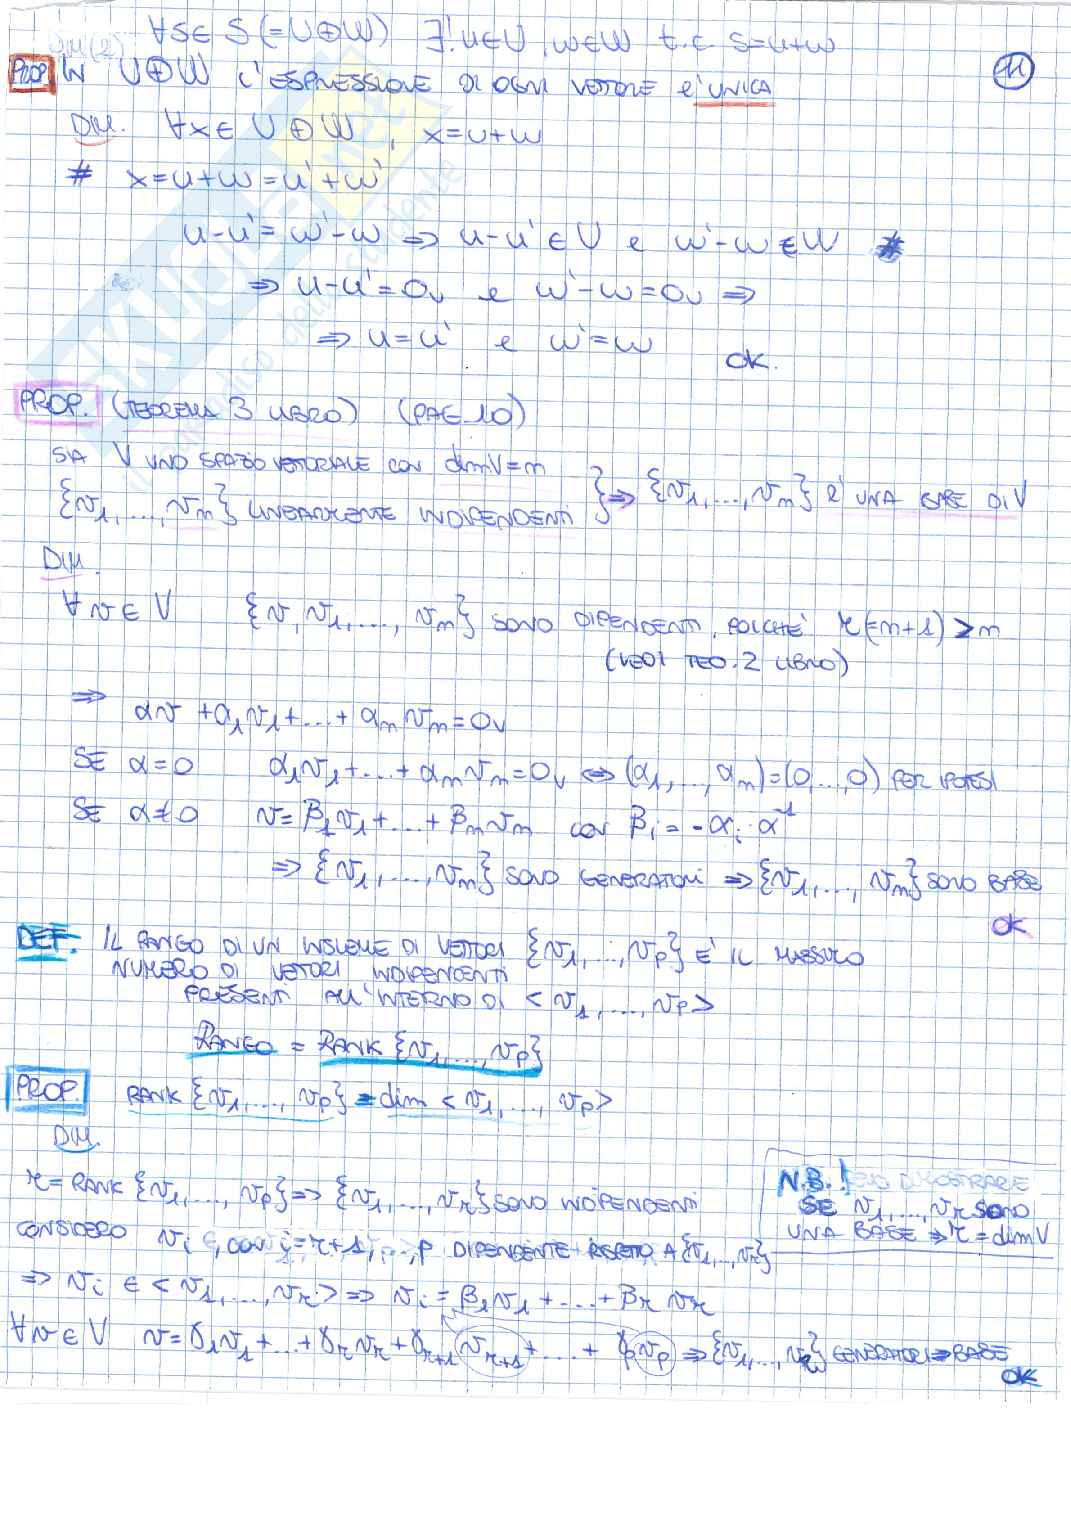 DIM(2) ∀S∈ S (=U⊕W) ∃! u∈U, w∈W t.c s=u+w
11
PROP. IN U⊕W L'ESPRESSIONE DI OGNI VETTORE è UNICA
DIM. ∀x∈ U⊕W, x=u+w
# x=u+w=u'+w'
u-u'=w'-w ⇒ u-u'∈U e w'-w∈W #
⇒ u-u'=0v e w'-w=0v ⇒
⇒ u=u' e w'=w OK.
PROP. (TEOREMA 3 LIBRO) (PAG 10)
SIA V UNO SPAZIO VETTORIALE CON dimV=n
{v1,...,vn} LINEARMENTE INDIPENDENTI } ⇒ {v1,...,vn} è UNA BASE DI V
DIM.
∀v∈V {v,v1,...,vn} SONO DIPENDENTI, POICHÉ r(=n+1)>n
(VEDI TEO.2 LIBRO)
⇒ αv+α1v1+...+αnvn=0v
SE α=0 α1v1+...+αnvn=0v ⇔ (α1,...,αn)=(0,...,0) PER IPOTESI
SE α≠0 v=β1v1+...+βnvn con βi=-αi·α⁻¹
⇒ {v1,...,vn} SONO GENERATORI ⇒ {v1,...,vn} SONO BASE
OK
DEF. IL RANGO DI UN INSIEME DI VETTORI {v1,...,vp} È IL MASSIMO
NUMERO DI VETTORI INDIPENDENTI
PRESENTI ALL'INTERNO DI <v1,...,vp>
RANGO = RANK {v1,...,vp}
PROP. RANK {v1,...,vp} = dim <v1,...,vp>
DIM.
r=RANK {v1,...,vp} ⇒ {v1,...,vr} SONO INDIPENDENTI
N.B.! DEVO DIMOSTRARE
SE v1,...,vr SONO
UNA BASE ⇒ r=dimV
CONSIDERO vi, con i=r+1,...,p DIPENDENTE RISPETTO A {v1,...,vr}
⇒ vi ∈ <v1,...,vr> ⇒ vi=β1v1+...+βrvr
∀v∈V v=γ1v1+...+γrvr+γr+1vr+1+...+γpvp ⇒ {v1,...,vr} GENERATORI ⇒ BASE
OK
SKUOLA.net
il paradiso dello studente